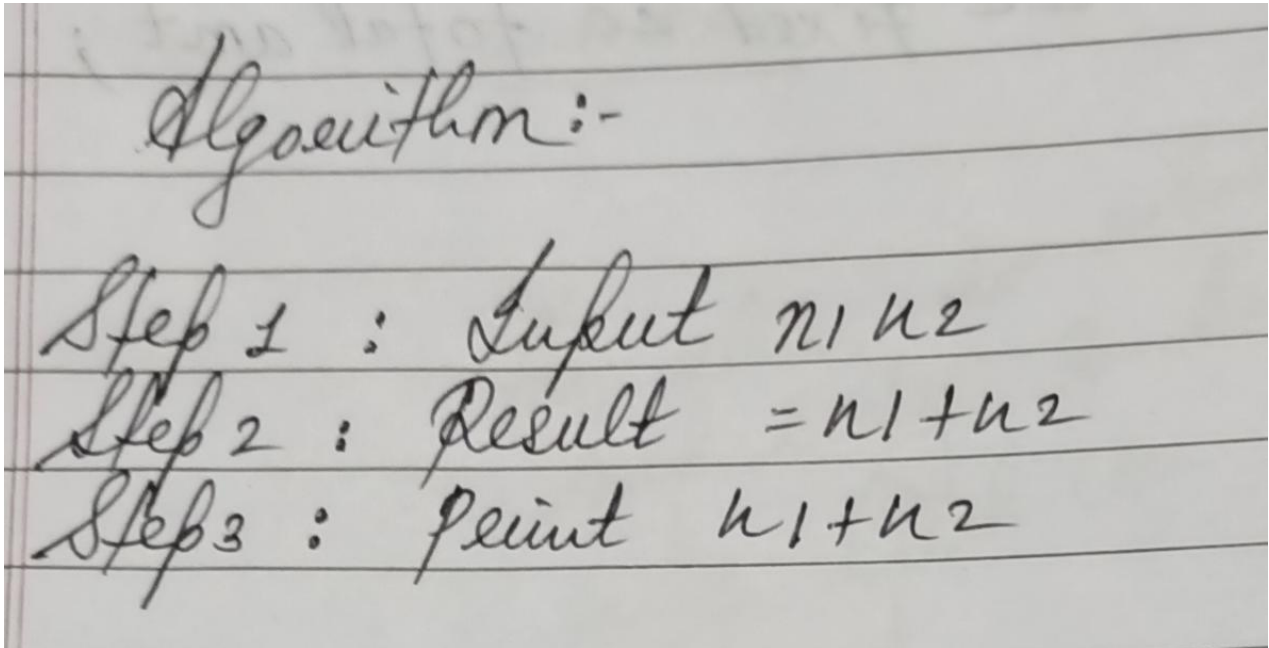 Algorithm :-
Step 1 : Input n1 n2
Step 2 : Result = n1+n2
Step 3 : Print n1+n2